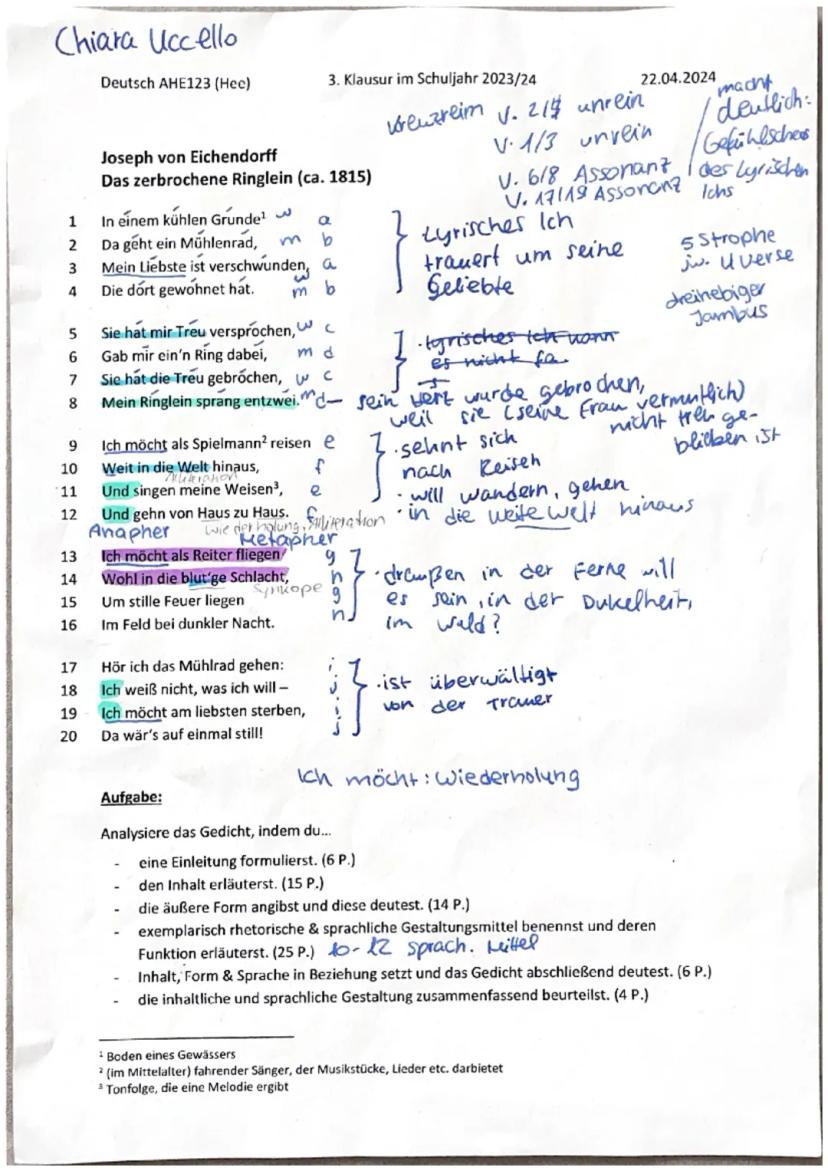 Chiara Uccello
Deutsch AHE123 (Hec) 3. Klausur im Schuljahr 2023/24 22.04.2024
Kreuzreim V. 2/4 unrein
V. 1/3 unrein
V. 6/8 Assonanz
V. 17/19 Assonanz
macht
deutlich:
Gefühlschaos
des Lyrischen
Ichs
Joseph von Eichendorff
Das zerbrochene Ringlein (ca. 1815)
1 In einem kühlen Grunde¹ w a
2 Da geht ein Mühlenrad, m b
3 Mein Liebste ist verschwunden, w a
4 Die dort gewohnet hat. m b
Lyrisches Ich
trauert um seine
Geliebte
5 Strophe
je. 4 Verse
dreihebiger
Jambus
5 Sie hat mir Treu versprochen, w c
6 Gab mir ein'n Ring dabei, m d
7 Sie hat die Treu gebrochen, w c
8 Mein Ringlein sprang entzwei. m d
· lyrisches Ich kann
es nicht fa
sein Herz wurde gebrochen,
weil sie (seine Frau vermutlich)
nicht treu ge-
blieben ist
9 Ich möcht als Spielmann² reisen e
10 Weit in die Welt hinaus, f
Alliteration
11 Und singen meine Weisen³, e
12 Und gehn von Haus zu Haus. f
Anapher Wiederholung, Alliteration
· sehnt sich
nach Reisen
· will wandern, gehen
· in die weite Welt hinaus
Metapher
13 Ich möcht als Reiter fliegen g
14 Wohl in die blut'ge Schlacht, h
Synkope
15 Um stille Feuer liegen g
16 Im Feld bei dunkler Nacht. h
· draußen in der Ferne will
es sein, in der Dukelheit,
im Wald?
17 Hör ich das Mühlrad gehen: i
18 Ich weiß nicht, was ich will – j
19 Ich möcht am liebsten sterben, i
20 Da wär's auf einmal still! j
· ist überwältigt
von der Trauer
Ich möcht: Wiederholung
Aufgabe:
Analysiere das Gedicht, indem du...
- eine Einleitung formulierst. (6 P.)
- den Inhalt erläuterst. (15 P.)
- die äußere Form angibst und diese deutest. (14 P.)
- exemplarisch rhetorische & sprachliche Gestaltungsmittel benennst und deren
Funktion erläuterst. (25 P.) 10-12 sprach. Mittel
- Inhalt, Form & Sprache in Beziehung setzt und das Gedicht abschließend deutest. (6 P.)
- die inhaltliche und sprachliche Gestaltung zusammenfassend beurteilst. (4 P.)
¹ Boden eines Gewässers
² (im Mittelalter) fahrender Sänger, der Musikstücke, Lieder etc. darbietet
³ Tonfolge, die eine Melodie ergibt